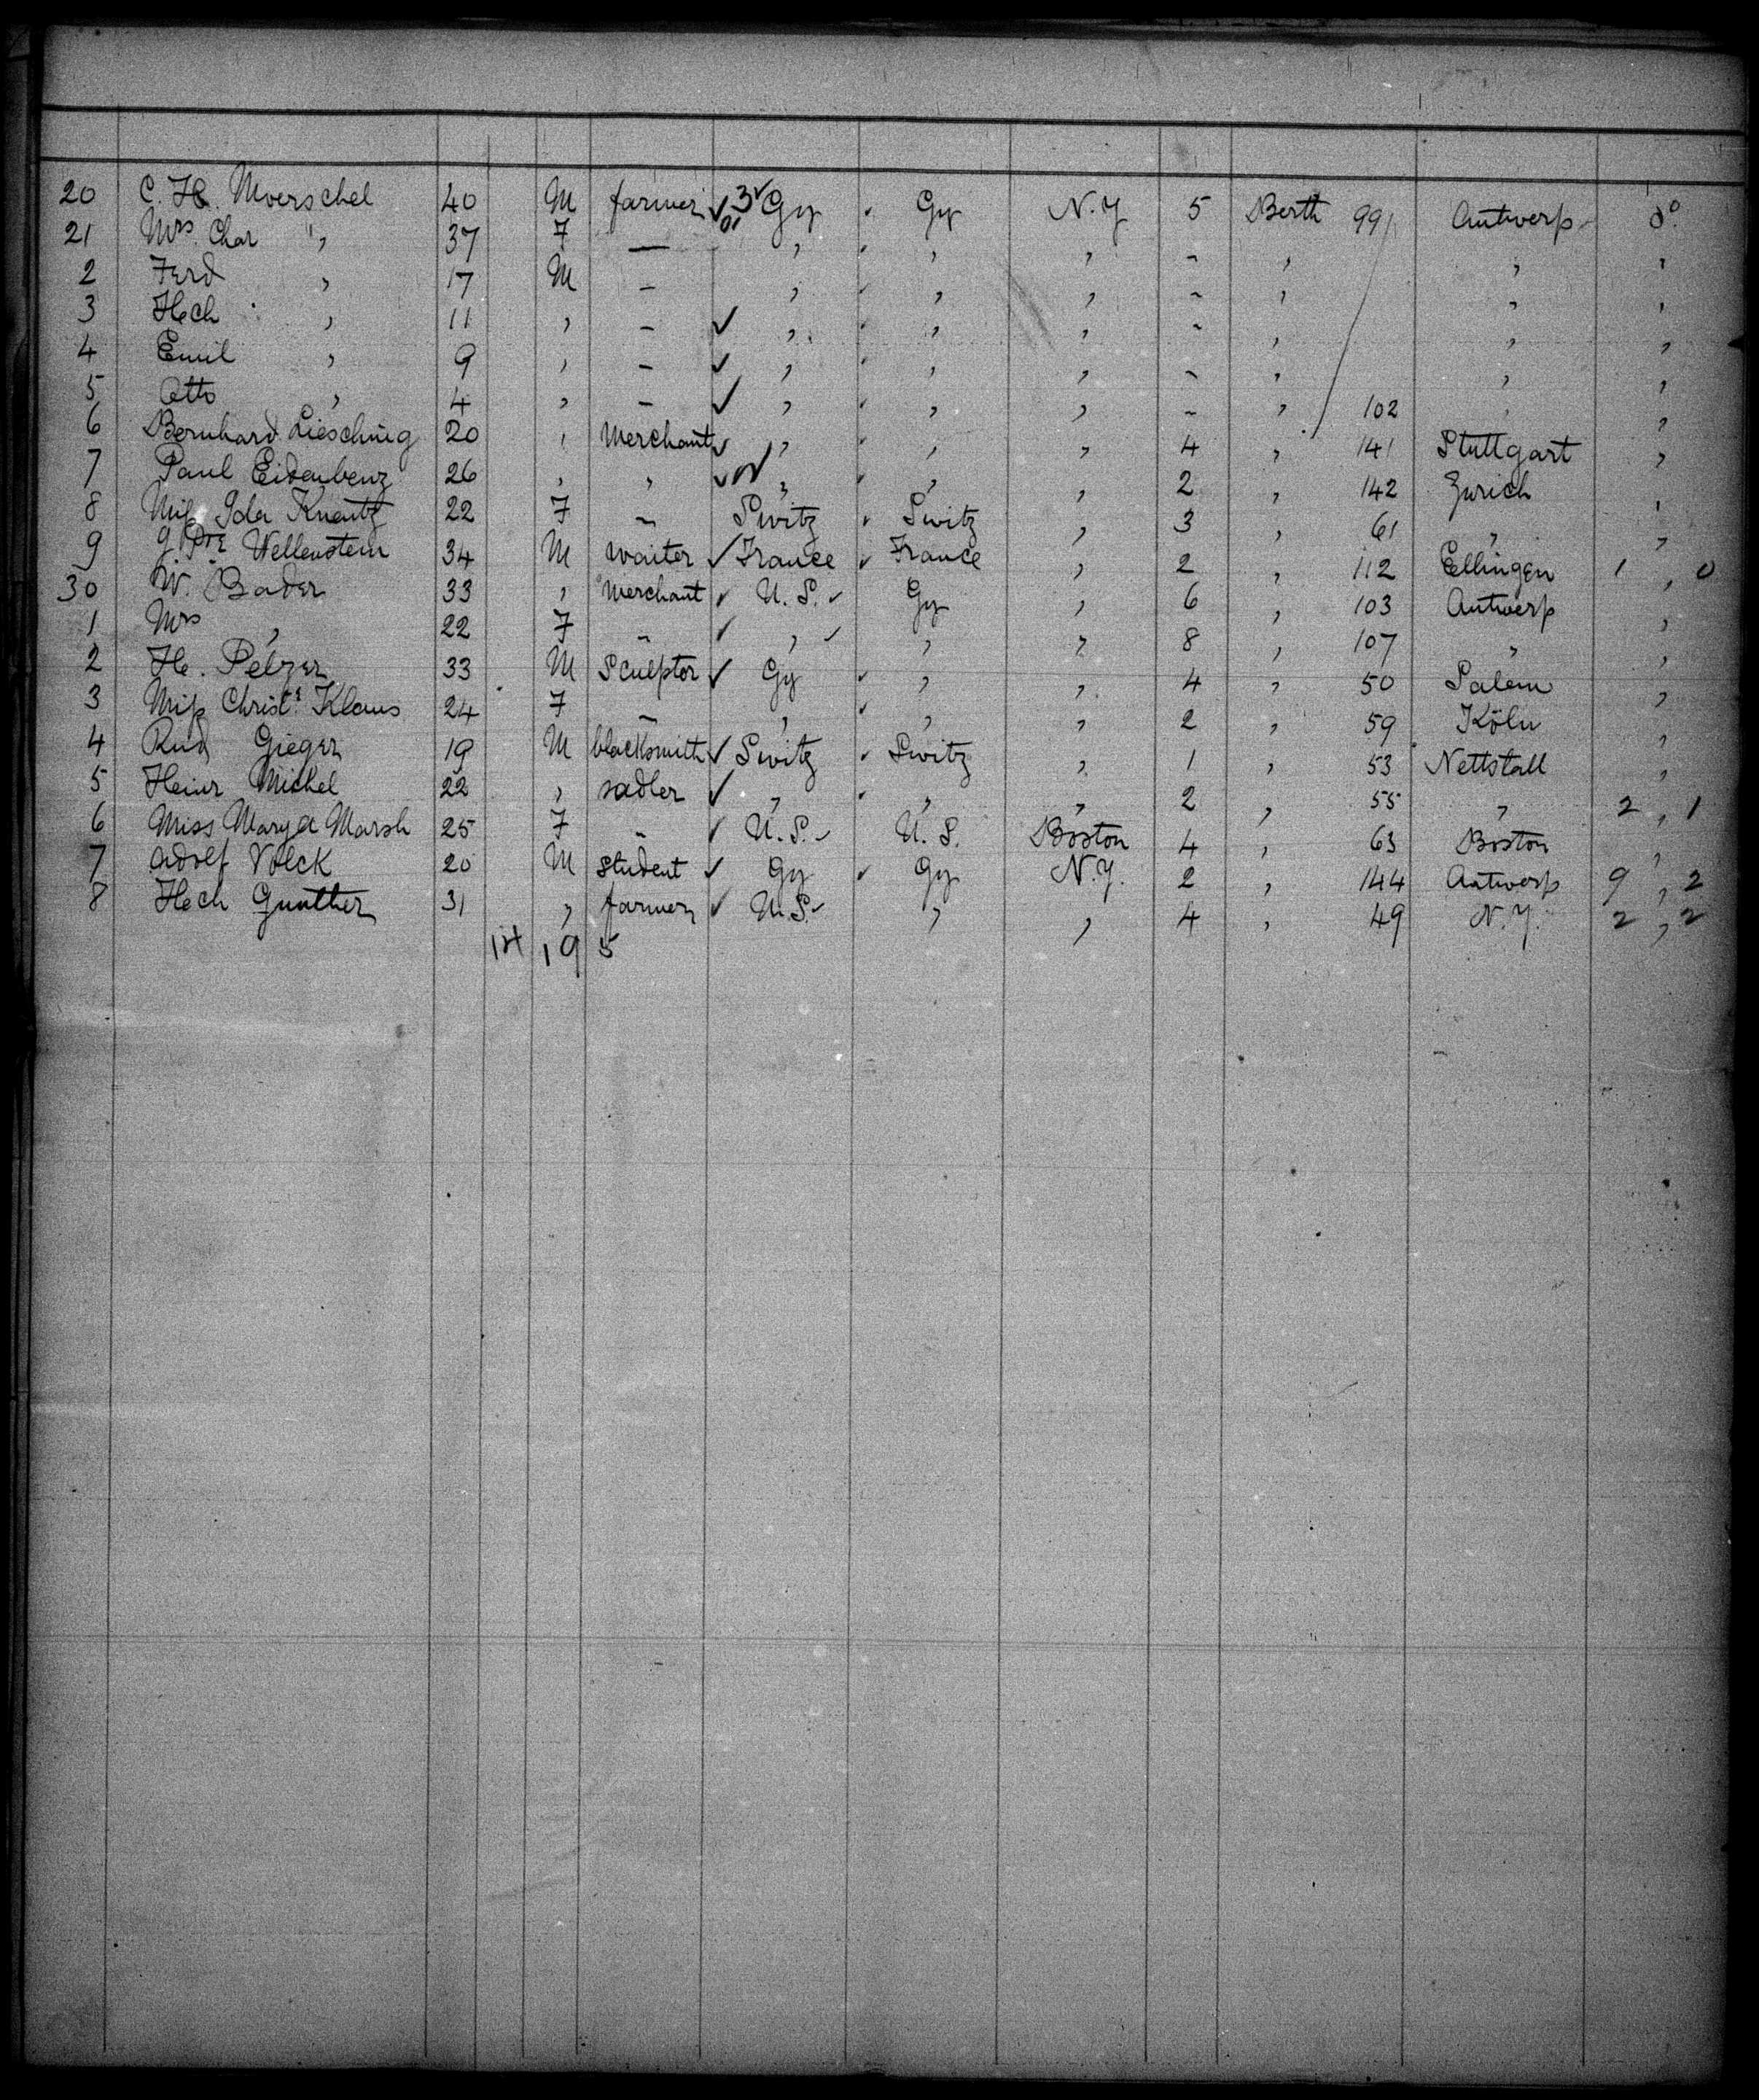 20 C. H. Moerschel 40 M farmer Gy Gy N.Y 5 Berth 99 Antwerp do
21 Mrs Char " 37 F — " " " " " " "
2 Ferd " 17 M — " " " " " " "
3 Hch " 11 " — " " " " " " "
4 Emil " 9 " — " " " " " " "
5 Otto " 4 " — " " " " " 102 " "
6 Bernhard Liesching 20 " Merchant " " " 4 " 141 Stuttgart "
7 Paul Eidenbenz 26 " " " " " 2 " 142 Zurich "
8 Miss Ida Knentz 22 F " Switz Switz " 3 " 61 " "
9 Wellenstein 34 M waiter France France " 2 " 112 Ellingen 1 " 0
30 W. Bader 33 " Merchant U. S. Gy " 6 " 103 Antwerp "
1 Mrs " 22 F " " " " 8 " 107 " "
2 H. Pelzer 33 M Sculptor Gy " " 4 " 50 Salem "
3 Miss Christe Klaus 24 F " " " " 2 " 59 Köln "
4 Rud Gieger 19 M blacksmith Switz Switz " 1 " 53 Nettstall "
5 Heinr Michel 22 " sadler " " " 2 " 55 " 2 " 1
6 Miss Mary A Marsh 25 F " U. S. U. S. Boston 4 " 63 Boston "
7 Adolf Volck 20 M Student Gy Gy N.Y. 2 " 144 Antwerp 9 " 2
8 Hch Gunther 31 " farmer U.S. " " 4 " 49 N.Y. 2 " 2
14 19 5